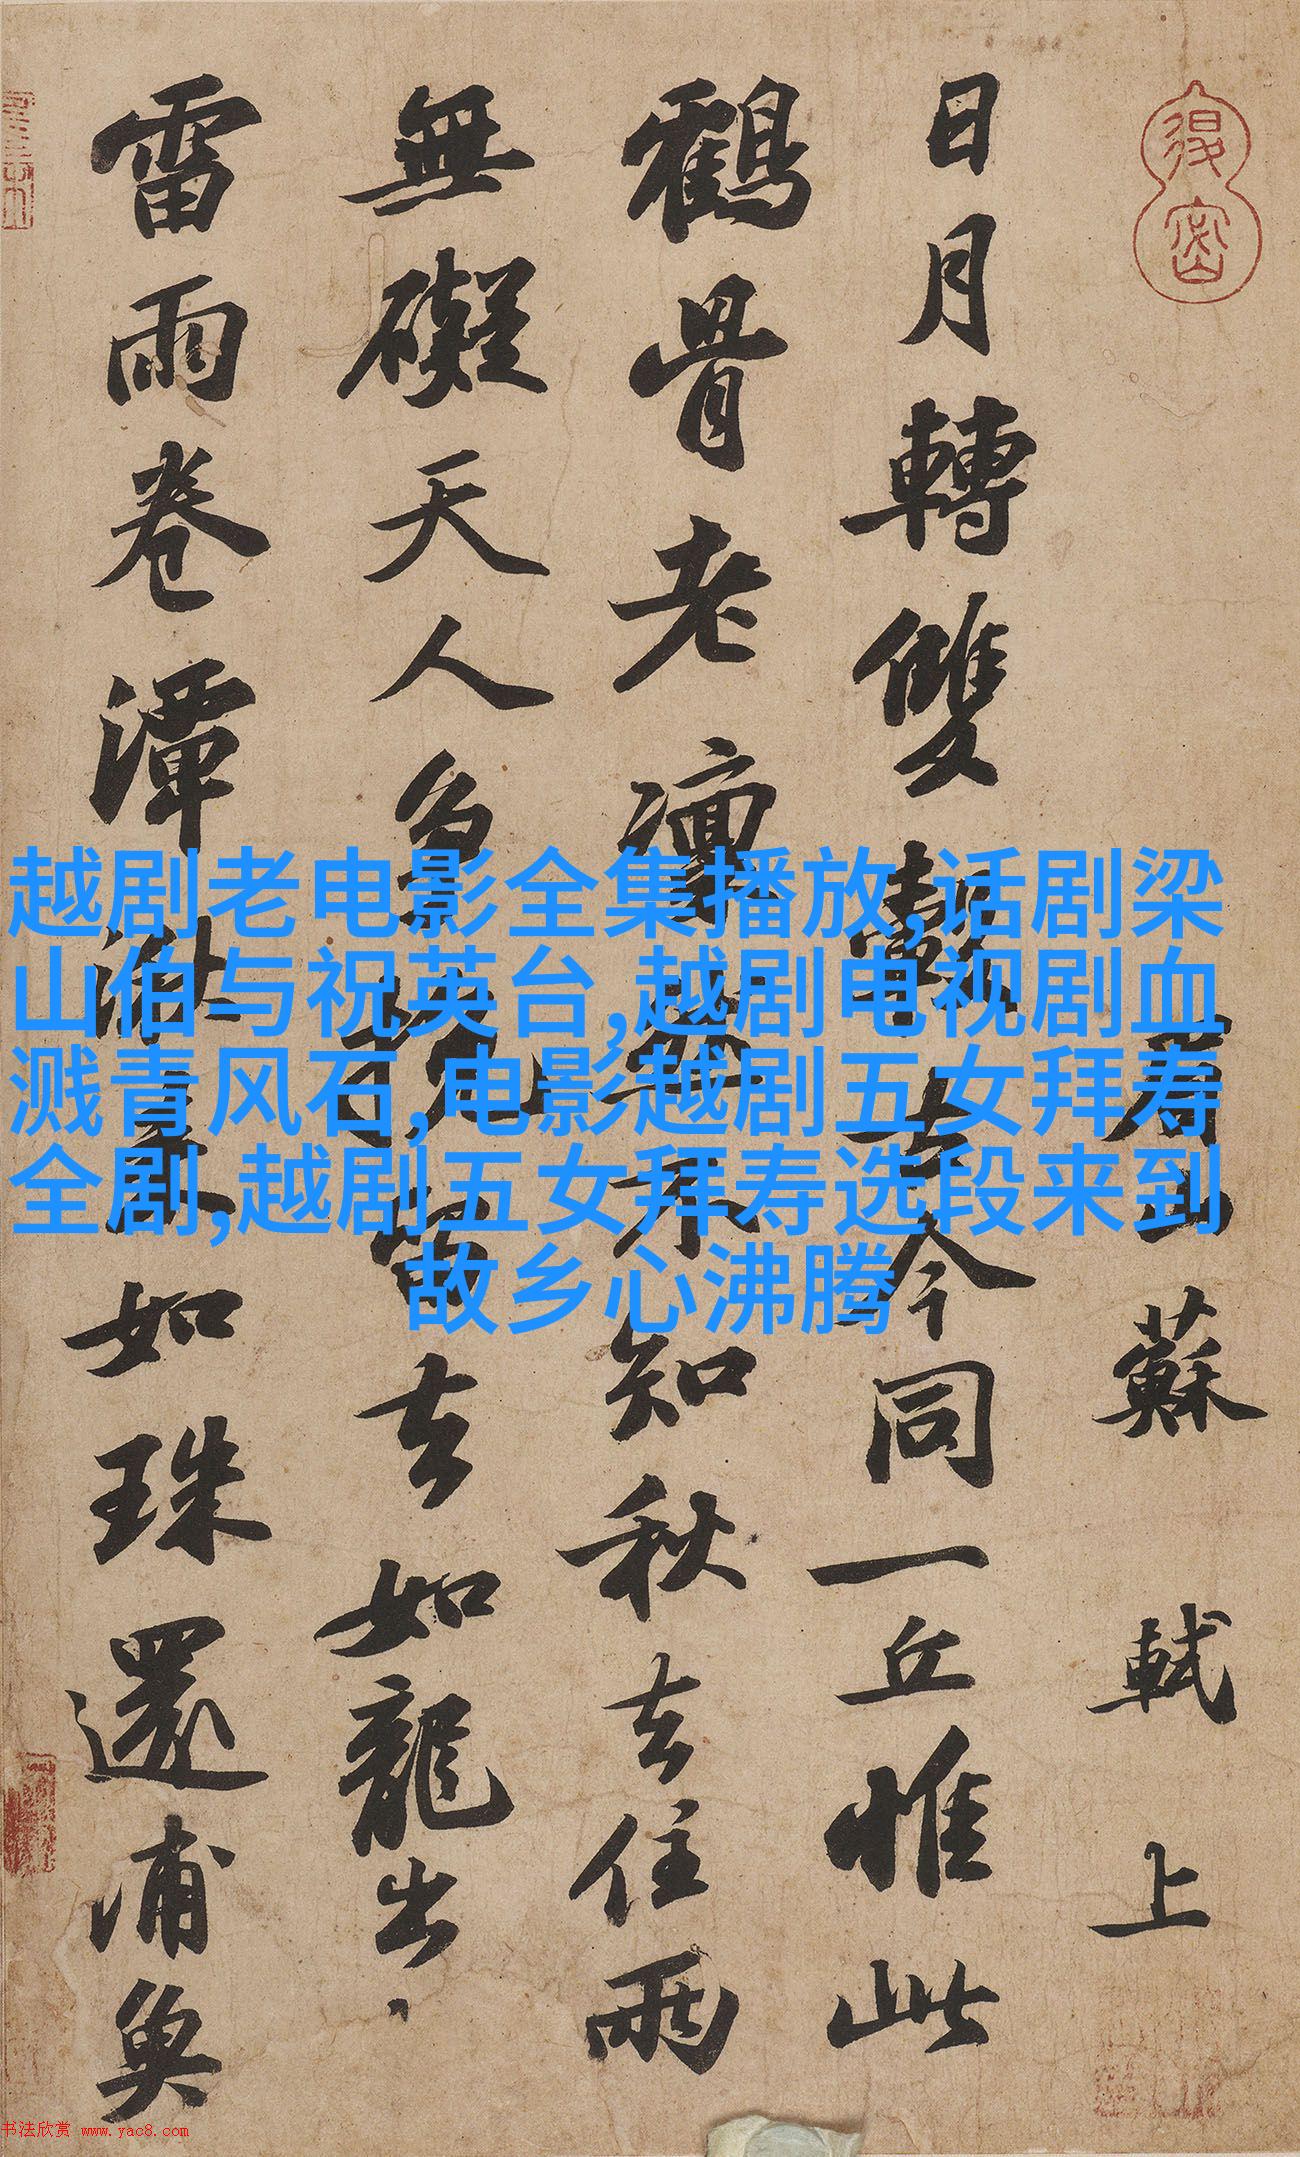 眉山蘇軾上
日月轉雙轂古今同一丘惟此
鶴骨老凜然不知秋去住兩
無礙天人爭挽留去如龍出
雷雨卷潭湫來如珠還浦魚
越剧老电影全集播放,话剧梁
山伯与祝英台,越剧电视剧血
溅青风石,电影越剧五女拜寿
全剧,越剧五女拜寿选段来到
故乡心沸腾
书法欣赏 www.yac8.com